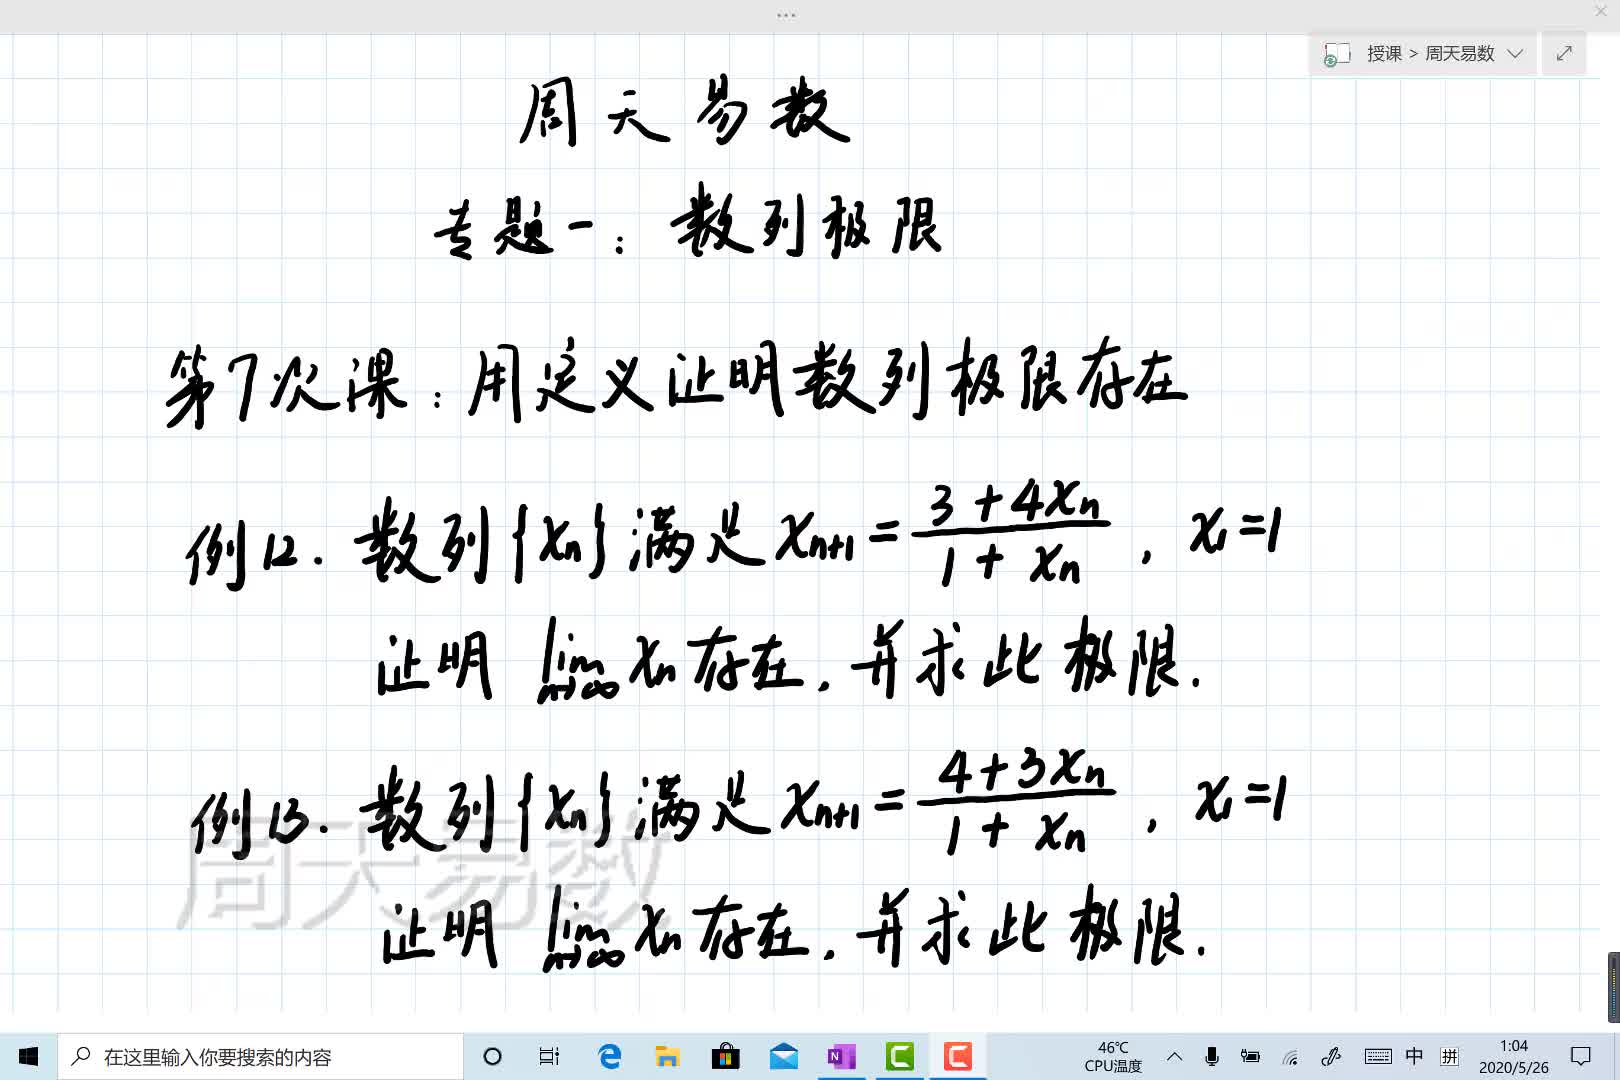 授课 > 周天易数
周天易数
专题一：数列极限
第7次课：用定义证明数列极限存在
例12. 数列{xₙ}满足 xₙ₊₁ = (3+4xₙ)/(1+xₙ), x₁=1
证明 lim n→∞ xₙ 存在, 并求此极限.
例13. 数列{xₙ}满足 xₙ₊₁ = (4+3xₙ)/(1+xₙ), x₁=1
周天易数
证明 lim n→∞ xₙ 存在, 并求此极限.
在这里输入你要搜索的内容
46℃
CPU温度
中
拼
1:04
2020/5/26